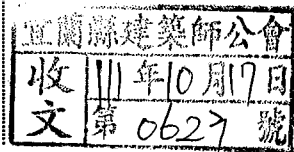 宜蘭縣建築師公會
收文
111年10月17日
第 0627 號